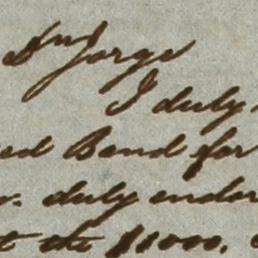 Dn Jorge
I duly
ed Bond for
duly endor
t the $1000.